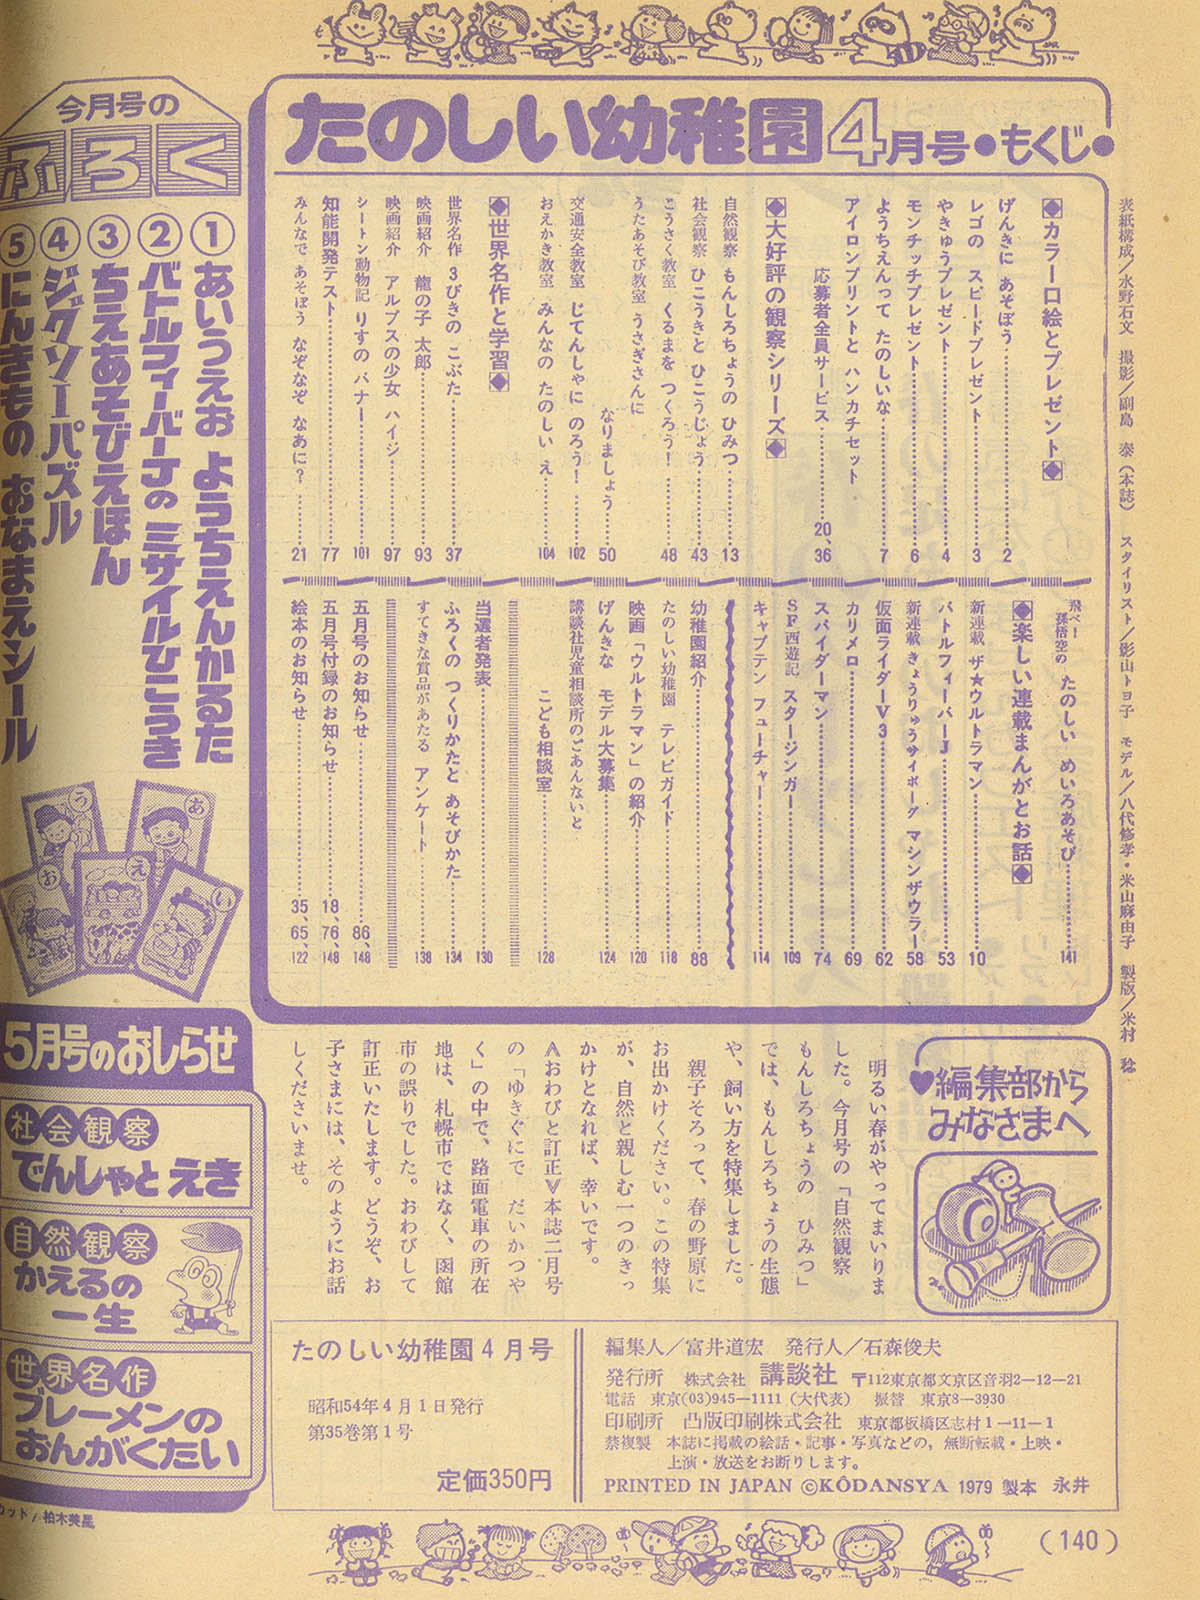 たのしい幼稚園4月号●もくじ●
◈カラー口絵とプレゼント◈
げんきに あそぼう……2
レゴの スピードプレゼント……3
やきゅうプレゼント……4
モンチッチプレゼント……6
ようちえんって たのしいな……7
アイロンプリントと ハンカチセット
応募者全員サービス……20、36
◈大好評の観察シリーズ◈
自然観察 もんしろちょうの ひみつ……13
社会観察 ひこうきと ひこうじょう……43
こうさく教室 くるまを つくろう!……48
うたあそび教室 うさぎさんに
なりましょう……50
交通安全教室 じてんしゃに のろう!……102
おえかき教室 みんなの たのしい え……104
◈世界名作と学習◈
世界名作 3びきの こぶた……37
映画紹介 龍の子 太郎……93
映画紹介 アルプスの少女 ハイジ……97
シートン動物記 りすの バナー……101
知能開発テスト……77
みんなで あそぼう なぞなぞ なあに?……21
飛べ!孫悟空の たのしい めいろあそび……141
◈楽しい連載まんがとお話◈
新連載 ザ★ウルトラマン……10
バトルフィーバーJ……53
新連載 きょうりゅうサイボーグ マシンザウラー……58
仮面ライダーV3……62
カリメロ……69
スパイダーマン……74
SF西遊記 スタージンガー……109
キャプテン フューチャー……114
幼稚園紹介……88
たのしい幼稚園 テレビガイド……118
映画「ウルトラマン」の紹介……120
げんきな モデル大募集……124
講談社児童相談所のごあんないと
こども相談室……128
当選者発表……130
ふろくの つくりかたと あそびかた……134
すてきな賞品があたる アンケート……138
五月号のお知らせ……86、148
五月号付録のお知らせ……18、76、148
絵本のお知らせ……35、65、122
表紙構成/水野石文 撮影/副島 泰(本誌) スタイリスト/影山トヨ子 モデル/八代修孝・米山麻由子 製版/米村 稔
今月号の
ふろく
①あいうえお ようちえんかるた
②バトルフィーバーJの ミサイルひこうき
③ちえあそびえほん
④ジグソーパズル
⑤にんきもの おなまえシール
あ
う
え
お
い
5月号のおしらせ
社会観察
でんしゃと えき
自然観察
かえるの
一生
世界名作
ブレーメンの
おんがくたい
カット/柏木美星
♥編集部から
みなさまへ
明るい春がやってまいりま
した。今月号の「自然観察
もんしろちょうの ひみつ」
では、もんしろちょうの生態
や、飼い方を特集しました。
親子そろって、春の野原に
お出かけください。この特集
が、自然と親しむ一つのきっ
かけとなれば、幸いです。
≪おわびと訂正≫本誌二月号
の「ゆきぐにで だいかつや
く」の中で、路面電車の所在
地は、札幌市ではなく、函館
市の誤りでした。おわびして
訂正いたします。どうぞ、お
子さまには、そのようにお話
しくださいませ。
たのしい幼稚園4月号
昭和54年4月1日発行
第35巻第1号
定価350円
編集人/富井道宏 発行人/石森俊夫
発行所 株式会社 講談社 〒112東京都文京区音羽2-12-21
電話 東京(03)945-1111(大代表) 振替 東京8-3930
印刷所 凸版印刷株式会社 東京都板橋区志村1-11-1
禁複製 本誌に掲載の絵話・記事・写真などの,無断転載・上映・
上演・放送をお断りします。
PRINTED IN JAPAN ©KÔDANSYA 1979 製本 永井
(140)